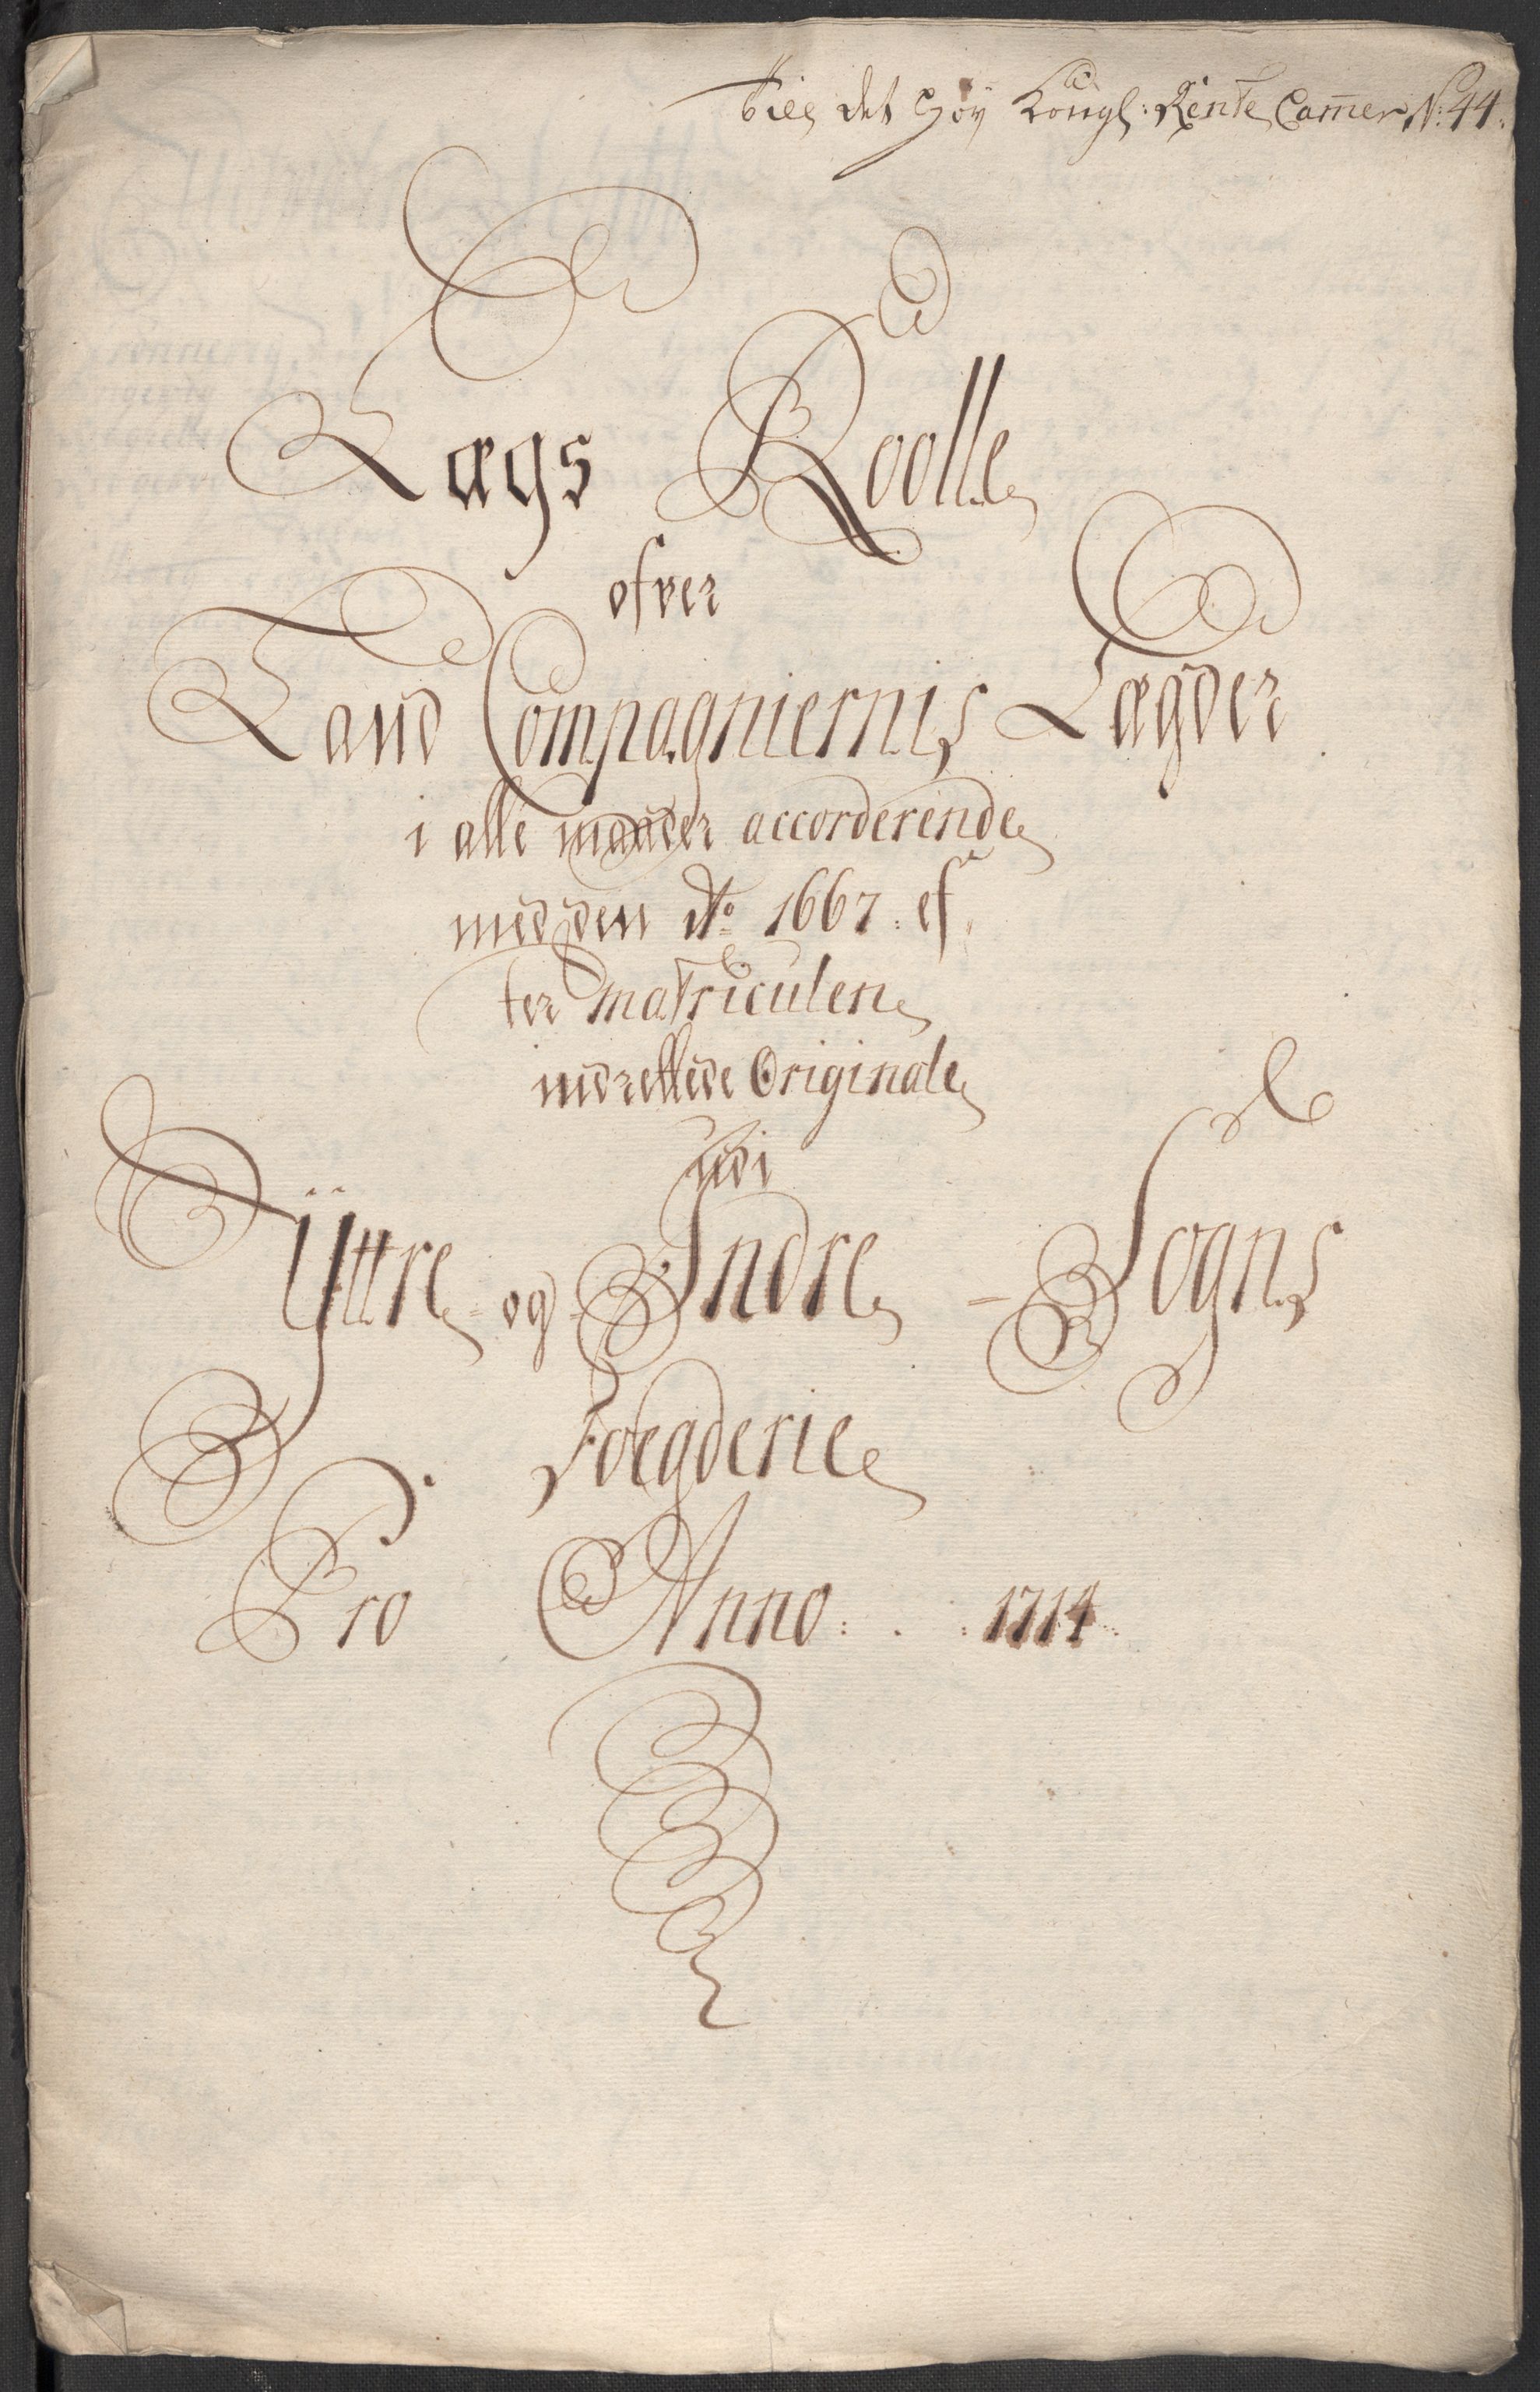 Till det Höy Kongl: Rente Camer N: 44.
Lægs Roolle
ofver
Land Compagniernis Lægder
i alle maader accorderende
med den Ao 1667. ef
ter Matriculen
indrettede Originale
udi
Yttre og Indre Sogns
Foegderie
Pro Anno: . : 1714